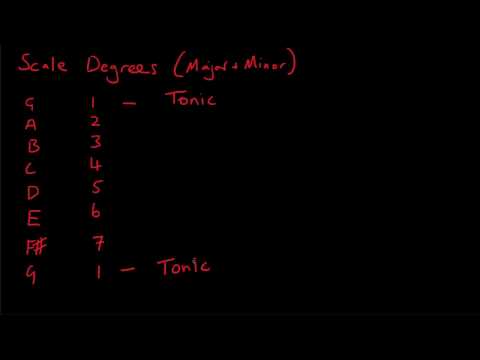 Scale Degrees (Major + Minor)
G 1 – Tonic
A 2
B 3
C 4
D 5
E 6
F# 7
G 1 – Tonic